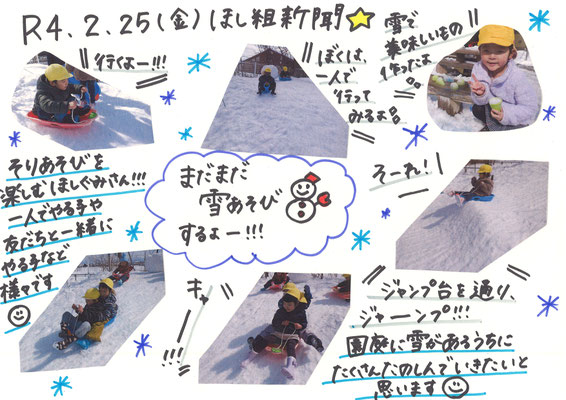 R4.2.25(金)ほし組新聞☆
行くよー!!!
ぼくは、
一人で
行って
みるよ。
雪で
美味しいもの
作ったよ
。。
そりあそびを
楽しむほしぐみさん!!!
一人でやる子や
友だちと一緒に
やる子など
様々です
まだまだ
雪あそび
するよー!!!
そーれ!
キャ
ー
!!!
ジャンプ台を通り、
ジャーンプ!!!
園庭に雪があるうちに
たくさんたのしんでいきたいと
思います